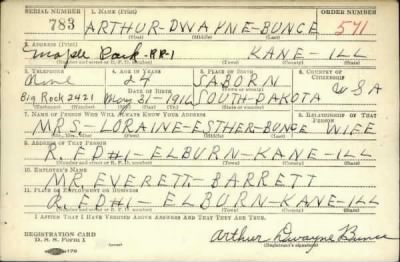 SERIAL NUMBER 1. NAME (Print) ORDER NUMBER
783 ARTHUR-DWAYNE-BUNCE 571
(First) (Middle) (Last)
2. ADDRESS (Print)
Maple Park-RR-1 KANE-ILL
(Number and street or R. F. D. number) (Town) (County) (State)
3. TELEPHONE 4. AGE IN YEARS 5. PLACE OF BIRTH 6. COUNTRY OF CITIZENSHIP
24 SABORN U S A
DATE OF BIRTH (Town or county)
Big Rock 2421 May 31-1916 SOUTH-DAKOTA
(Exchange) (Number) (Mo.) (Day) (Yr.) (State or country)
7. NAME OF PERSON WHO WILL ALWAYS KNOW YOUR ADDRESS 8. RELATIONSHIP OF THAT PERSON
MRS-LORAINE-ESTHER-BUNCE WIFE
(Mr., Mrs., Miss) (First) (Middle) (Last)
9. ADDRESS OF THAT PERSON
ELBURN-KANE-ILL
(Number and street or R. F. D. number) (Town) (County) (State)
10. EMPLOYER'S NAME
MR EVERETT-BARRETT
11. PLACE OF EMPLOYMENT OR BUSINESS
ELBURN-KANE-ILL
(Number and street or R. F. D. number) (Town) (County) (State)
I AFFIRM THAT I HAVE VERIFIED ABOVE ANSWERS AND THAT THEY ARE TRUE.
REGISTRATION CARD
D. S. S. Form 1 Arthur Dwayne Bunce
(Registrant's signature)